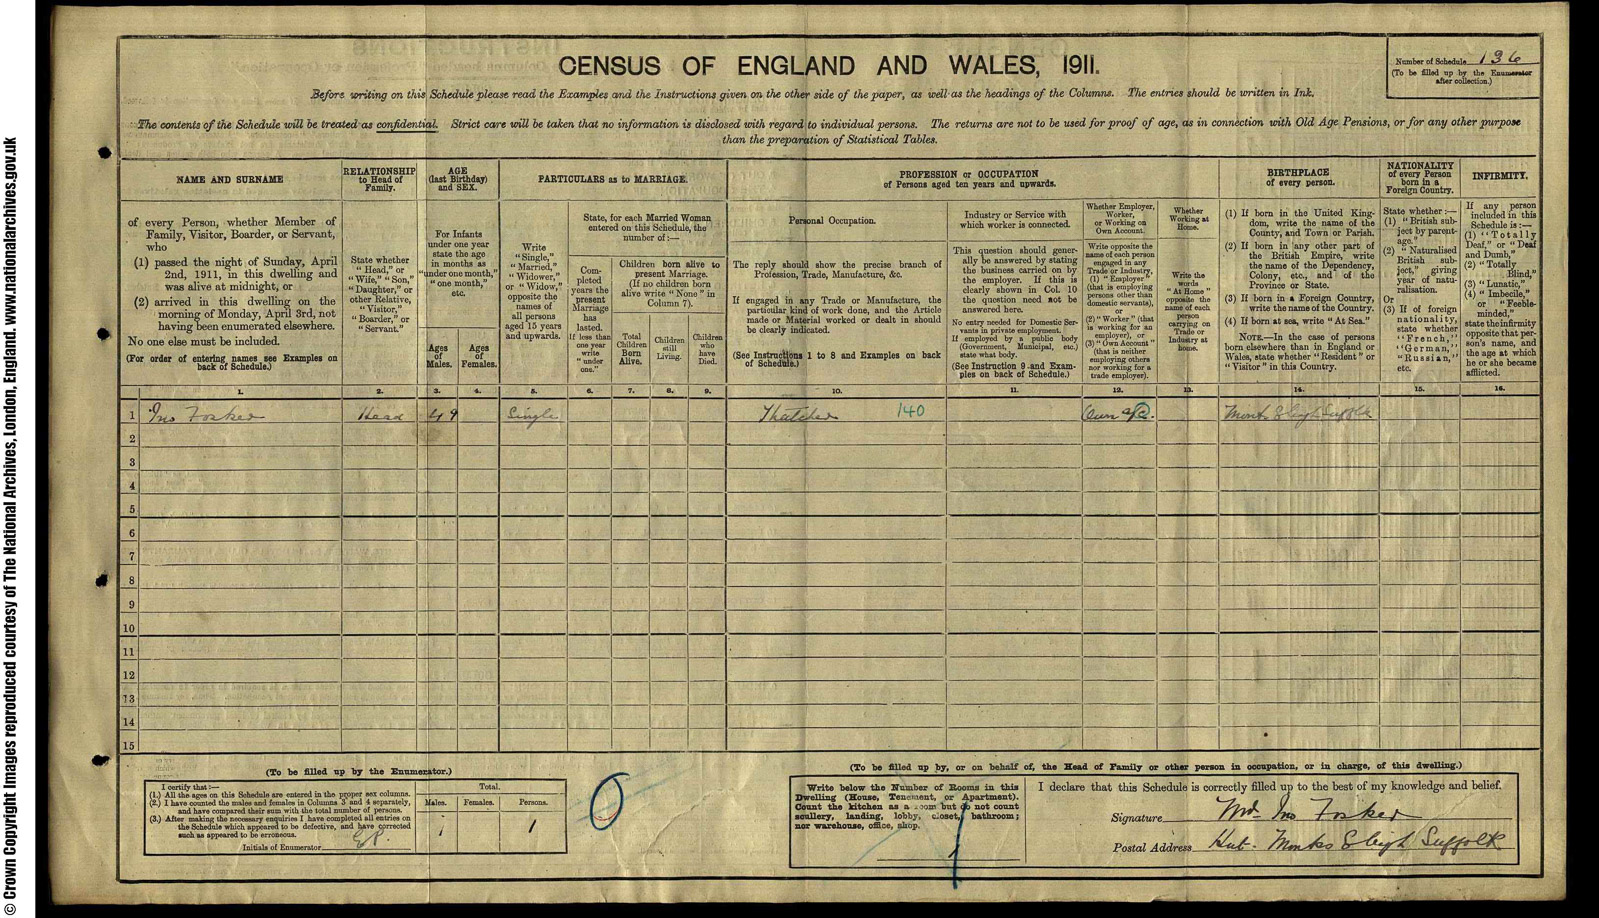 CENSUS OF ENGLAND AND WALES, 1911.
Number of Schedule 136
(To be filled up by the Enumerator after collection.)
Before writing on this Schedule please read the Examples and the Instructions given on the other side of the paper, as well as the headings of the Columns. The entries should be written in Ink.
The contents of the Schedule will be treated as confidential. Strict care will be taken that no information is disclosed with regard to individual persons. The returns are not to be used for proof of age, as in connection with Old Age Pensions, or for any other purpose
than the preparation of Statistical Tables.
NAME AND SURNAME
of every Person, whether Member of
Family, Visitor, Boarder, or Servant,
who
(1) passed the night of Sunday, April
2nd, 1911, in this dwelling and
was alive at midnight, or
(2) arrived in this dwelling on the
morning of Monday, April 3rd, not
having been enumerated elsewhere.
No one else must be included.
(For order of entering names see Examples on
back of Schedule.)
RELATIONSHIP
to Head of
Family.
State whether
"Head," or
"Wife," "Son,"
"Daughter," or
other Relative,
"Visitor,"
"Boarder," or
"Servant."
AGE
(last Birthday)
and SEX.
For Infants
under one year
state the age
in months as
"under one month,"
"one month,"
etc.
Ages
of
Males.
Ages
of
Females.
PARTICULARS as to MARRIAGE.
Write
"Single,"
"Married,"
"Widower,"
or "Widow,"
opposite the
names of
all persons
aged 15 years
and upwards.
State, for each Married Woman
entered on this Schedule, the
number of:—
Com-
pleted
years the
present
Marriage
has
lasted.
If less than
one year
write
"under
one."
Children born alive to
present Marriage.
(If no children born
alive write "None" in
Column 7).
Total
Children
Born
Alive.
Children
still
Living.
Children
who
have
Died.
PROFESSION or OCCUPATION
of Persons aged ten years and upwards.
Personal Occupation.
The reply should show the precise branch of
Profession, Trade, Manufacture, &c.
If engaged in any Trade or Manufacture, the
particular kind of work done, and the Article
made or Material worked or dealt in should
be clearly indicated.
(See Instructions 1 to 8 and Examples on back
of Schedule.)
Industry or Service with
which worker is connected.
This question should gener-
ally be answered by stating
the business carried on by
the employer. If this is
clearly shown in Col. 10
the question need not be
answered here.
No entry needed for Domestic Ser-
vants in private employment.
If employed by a public body
(Government, Municipal, etc.)
state what body.
(See Instruction 9 and Exam-
ples on back of Schedule.)
Whether Employer,
Worker,
or Working on
Own Account.
Write opposite the
name of each person
engaged in any
Trade or Industry,
(1) "Employer"
(that is employing
persons other than
domestic servants),
or
(2) "Worker" (that
is working for an
employer), or
(3) "Own Account"
(that is neither
employing others
nor working for a
trade employer).
Whether
Working at
Home.
Write the
words
"At Home"
opposite the
name of each
person
carrying on
Trade or
Industry at
home.
BIRTHPLACE
of every person.
(1) If born in the United King-
dom, write the name of the
County, and Town or Parish.
(2) If born in any other part of
the British Empire, write
the name of the Dependency,
Colony, etc., and of the
Province or State.
(3) If born in a Foreign Country,
write the name of the Country.
(4) If born at sea, write "At Sea."
NOTE.—In the case of persons
born elsewhere than in England or
Wales, state whether "Resident" or
"Visitor" in this Country.
NATIONALITY
of every Person
born in a
Foreign Country.
State whether:—
(1) "British sub-
ject by parent-
age."
(2) "Naturalised
British sub-
ject," giving
year of natu-
ralisation.
Or
(3) If of foreign
nationality,
state whether
"French,"
"German,"
"Russian,"
etc.
INFIRMITY.
If any person
included in this
Schedule is:—
(1) "Totally
Deaf," or "Deaf
and Dumb,"
(2) "Totally
Blind,"
(3) "Lunatic,"
(4) "Imbecile,"
or "Feeble-
minded,"
state the infirmity
opposite that per-
son's name, and
the age at which
he or she became
afflicted.
1. 2. 3. 4. 5. 6. 7. 8. 9. 10. 11. 12. 13. 14. 15. 16.
1 Jno Fosker Head 49 Single Thatcher 140 Own a/c. Monks Eleigh Suffolk
2
3
4
5
6
7
8
9
10
11
12
13
14
15
(To be filled up by the Enumerator.)
I certify that:—
(1.) All the ages on this Schedule are entered in the proper sex columns.
(2.) I have counted the males and females in Columns 3 and 4 separately,
and have compared their sum with the total number of persons.
(3.) After making the necessary enquiries I have completed all entries on
the Schedule which appeared to be defective, and have corrected
such as appeared to be erroneous.
Initials of Enumerator
Total.
Males. Females. Persons.
1 1
0
(To be filled up by, or on behalf of, the Head of Family or other person in occupation, or in charge, of this dwelling.)
Write below the Number of Rooms in this
Dwelling (House, Tenement, or Apartment).
Count the kitchen as a room but do not count
scullery, landing, lobby, closet, bathroom;
nor warehouse, office, shop.
1
I declare that this Schedule is correctly filled up to the best of my knowledge and belief.
Signature Jno Fosker
Postal Address Hut. Monks Eleigh Suffolk
© Crown Copyright Images reproduced courtesy of The National Archives, London, England. www.nationalarchives.gov.uk